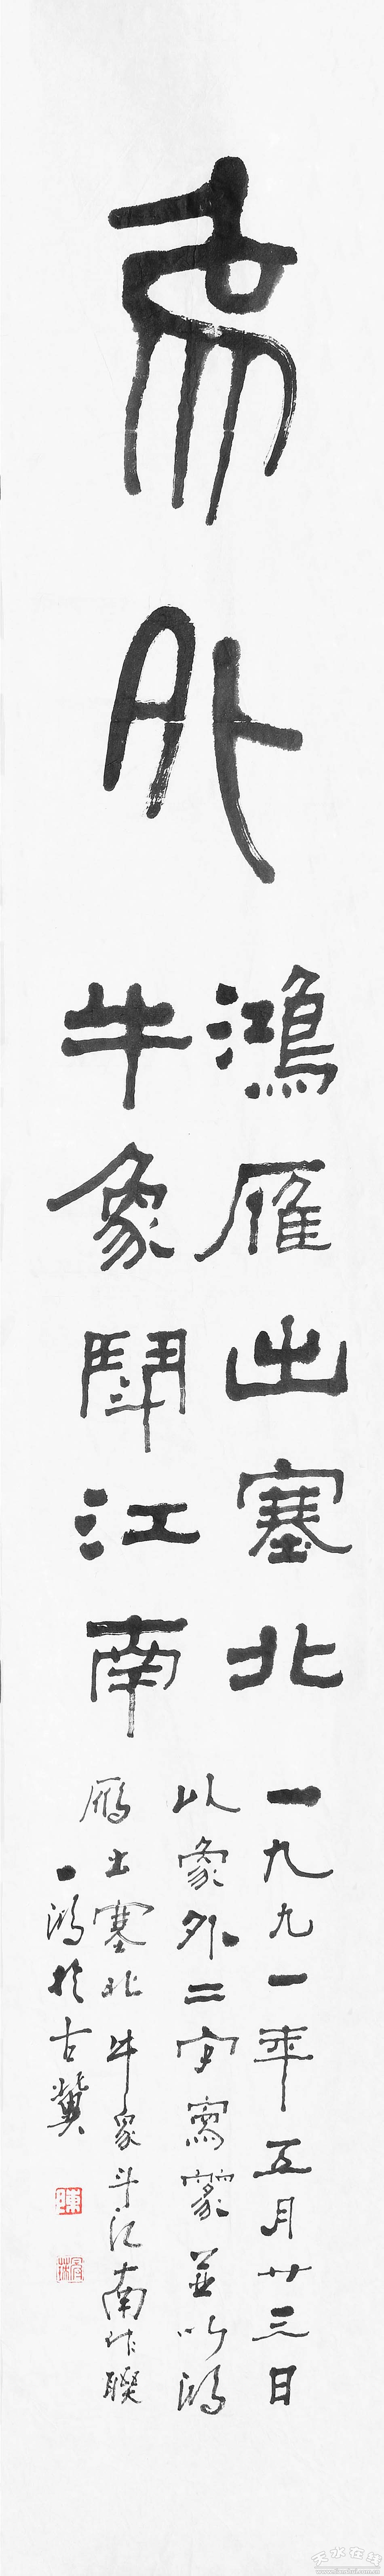 象外
鴻雁出塞北
牛象鬥江南
一九九一年五月廿三日
以象外二字寫蒙並以鴻
雁出塞北牛象斗江南作聯
一鴻於古冀
陳
天水在线